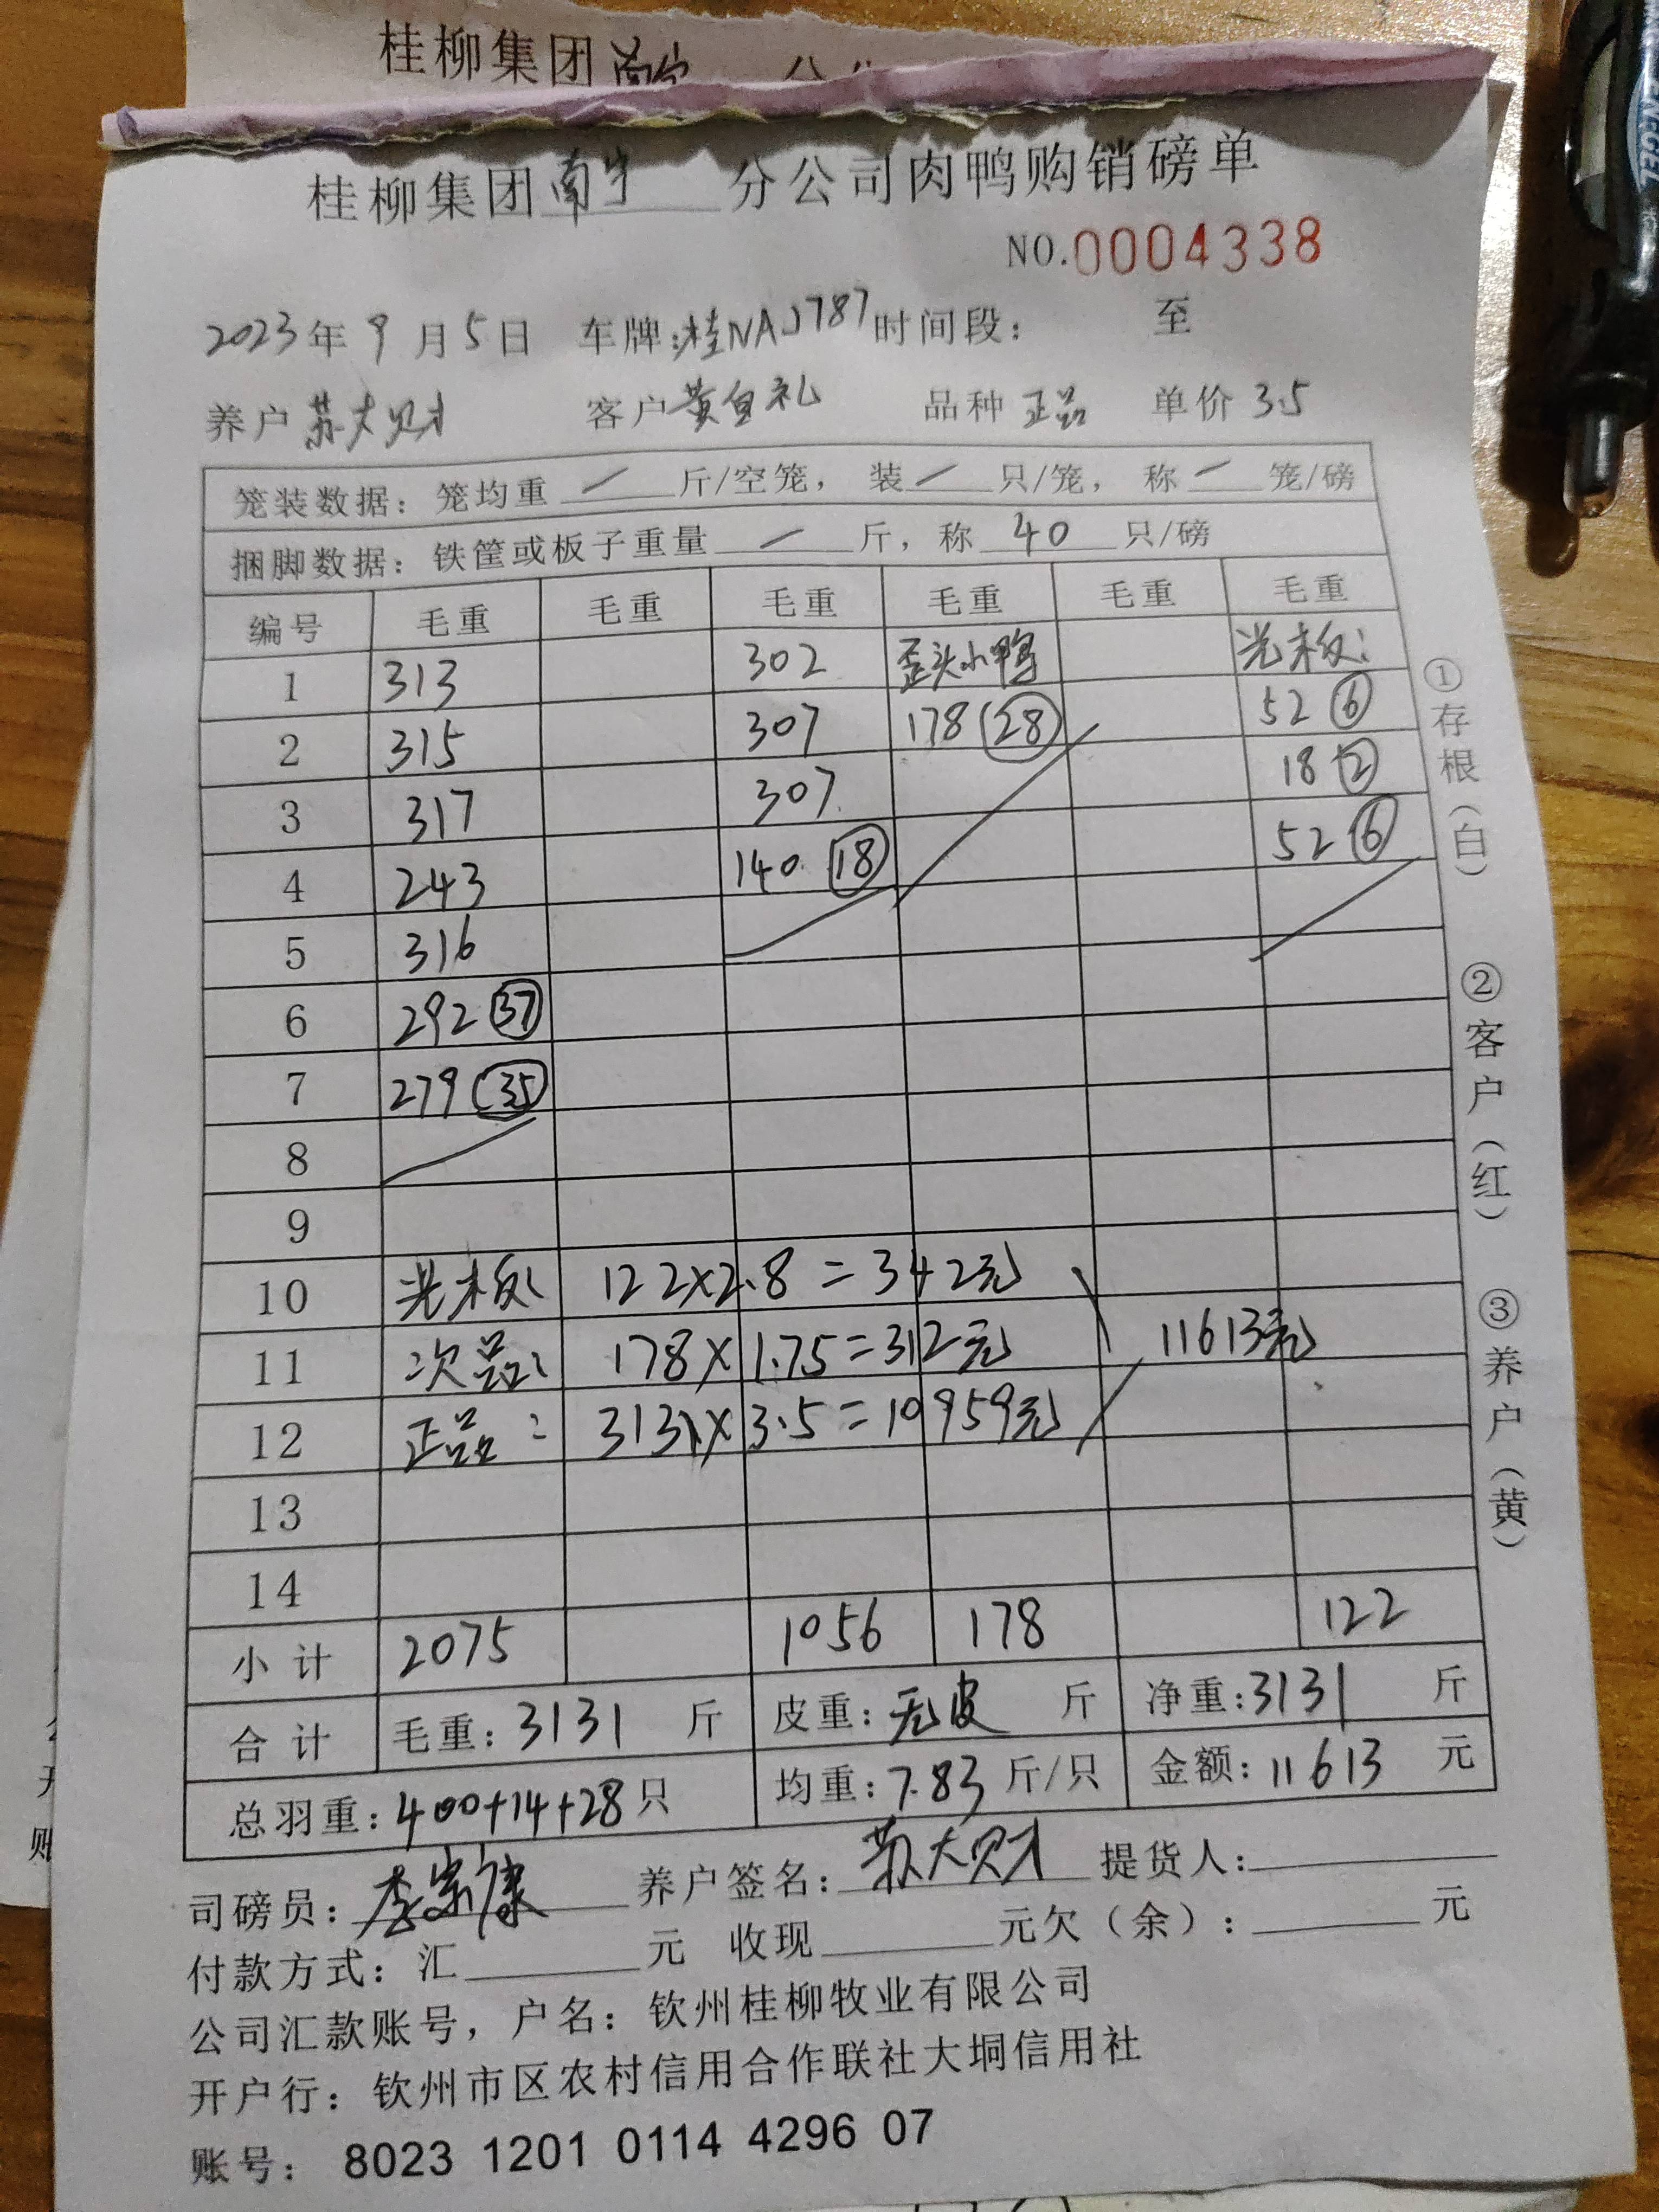 桂柳集团南宁 分公
桂柳集团南宁 分公司肉鸭购销磅单
NO.0004338
2023年9月5日 车牌:桂NAJ787 时间段: 至
养户 苏大财 客户 黄自礼 品种 正品 单价 3.5
笼装数据: 笼均重 / 斤/空笼, 装 / 只/笼, 称 / 笼/磅
捆脚数据: 铁筐或板子重量 / 斤, 称 40 只/磅
编号 毛重 毛重 毛重 毛重 毛重 毛重
1 313 302 歪头小鸭 光板:
2 315 307 178 (28) 52 (6)
3 317 307 18 (2)
4 243 140 (18) 52 (6)
5 316
6 292 (37)
7 279 (35)
8
9
10 光板: 122×2.8=342元
11 次品: 178×1.75=312元 11613元
12 正品: 3131×3.5=10959元
13
14
小计 2075 1056 178 122
合计 毛重: 3131 斤 皮重: 无皮 斤 净重: 3131 斤
总羽重: 400+14+28 只 均重: 7.83 斤/只 金额: 11613 元
司磅员: 李宗康 养户签名: 苏大财 提货人:
付款方式: 汇 元 收现 元欠(余): 元
公司汇款账号, 户名: 钦州桂柳牧业有限公司
开户行: 钦州市区农村信用合作联社大垌信用社
账号: 8023 1201 0114 4296 07
①存根(白) ②客户(红) ③养户(黄)